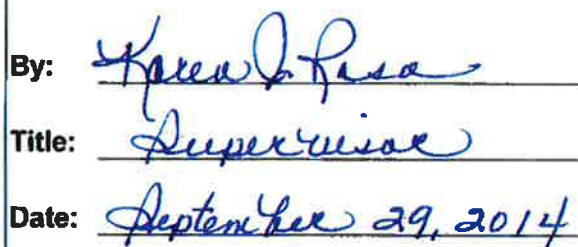 By: Karen J. Rasa
Title: Supervisor
Date: September 29, 2014